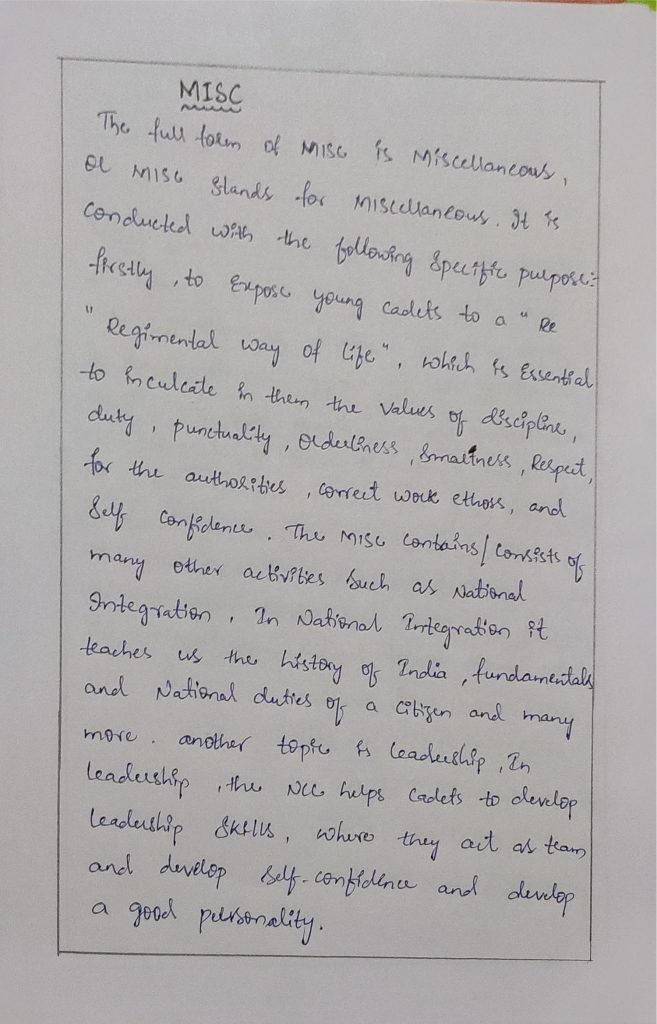 MISC
The full form of MISC is Miscellaneous,
or MISC Stands for Miscellaneous. It is
Conducted with the following Specific purpose:-
firstly, to Expose young Cadets to a " Re
" Regimental way of life", which is Essential
to inculcate in them the Values of discipline,
duty, punctuality, orderliness, Smartness, Respect,
for the authorities, correct work ethoss, and
Self Confidence. The MISC Contains/Consists of
many other activities Such as National
Integration. In National Integration it
teaches us the history of India, fundamentals
and National duties of a citizen and many
more. another topic is leadership, In
leadership, the NCC helps Cadets to develop
leadership Skills, where they act as team
and develop Self-confidence and develop
a good personality.